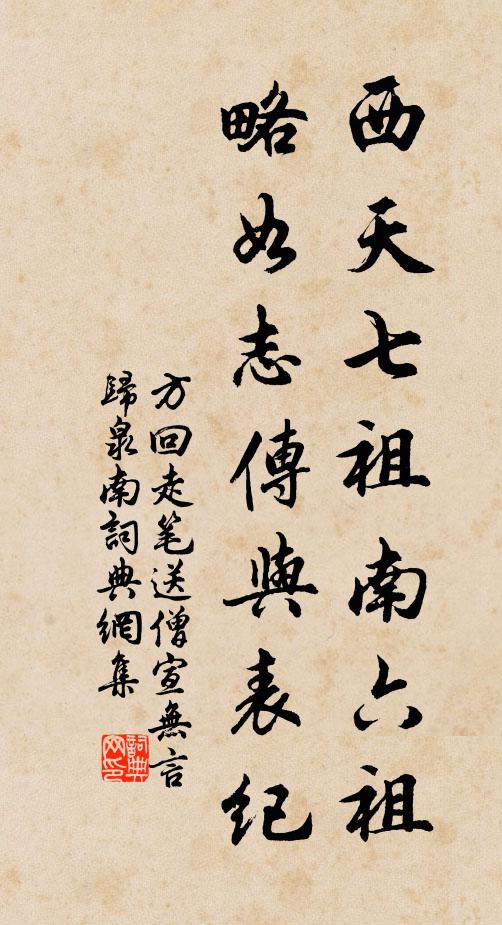 西天七祖南六祖
略如志傳與表紀
方回走笔送僧宣無言
歸泉南詞典網集
詞典網印